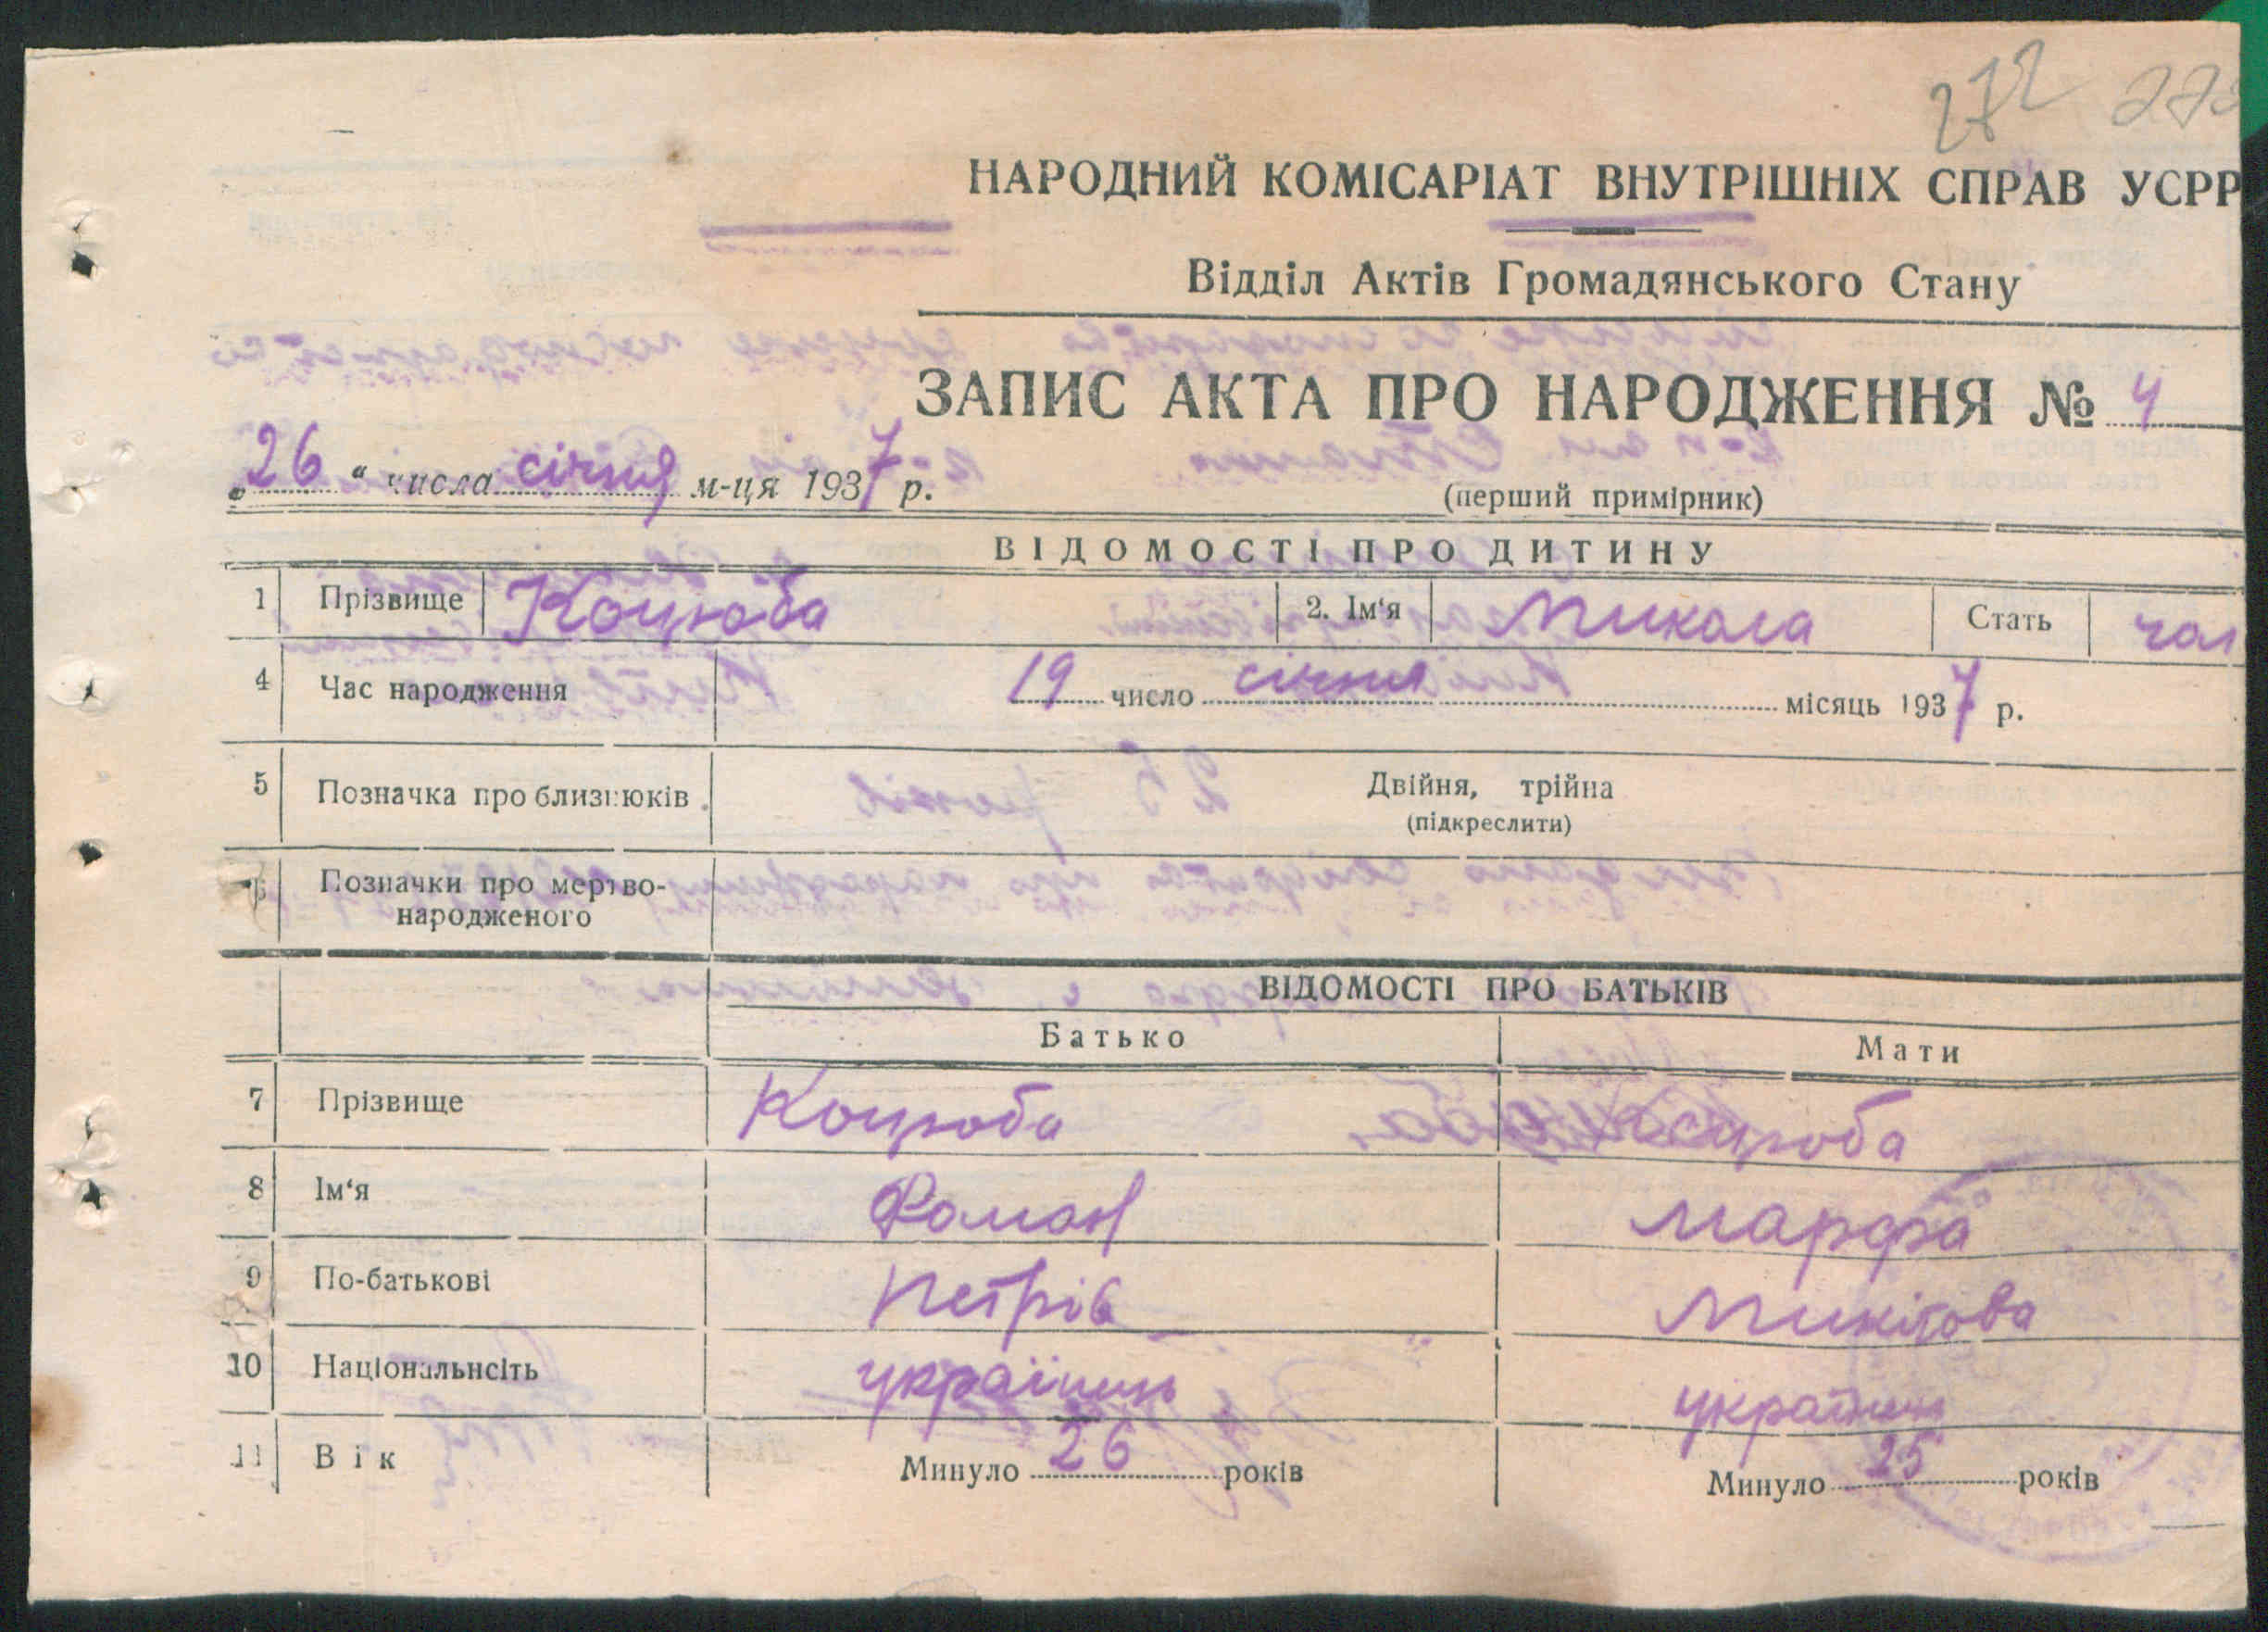 272 273
НАРОДНИЙ КОМІСАРІАТ ВНУТРІШНІХ СПРАВ УСРР
Відділ Актів Громадянського Стану
ЗАПИС АКТА ПРО НАРОДЖЕННЯ № 4
„26“ числа січня м-ця 1937 р.
(перший примірник)
ВІДОМОСТІ ПРО ДИТИНУ
1 Прізвище Коцюба 2. Ім‘я Микола Стать чол
4 Час народження 19 число січня місяць 1937 р.
5 Позначка про близнюків Двійня, трійна
(підкреслити)
6 Позначки про мертво-
народженого
ВІДОМОСТІ ПРО БАТЬКІВ
Батько Мати
7 Прізвище Коцюба Коцюба
8 Ім‘я Роман Марфа
9 По-батькові Петрів Микитова
10 Національнсіть українець
11 Вік Минуло 26 років Минуло 25 років